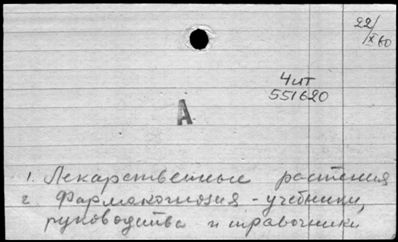 22/X 60
Чит
551620
А
1. Лекарственные растения
2. Фармакогнозия - учебники,
руководства и справочники